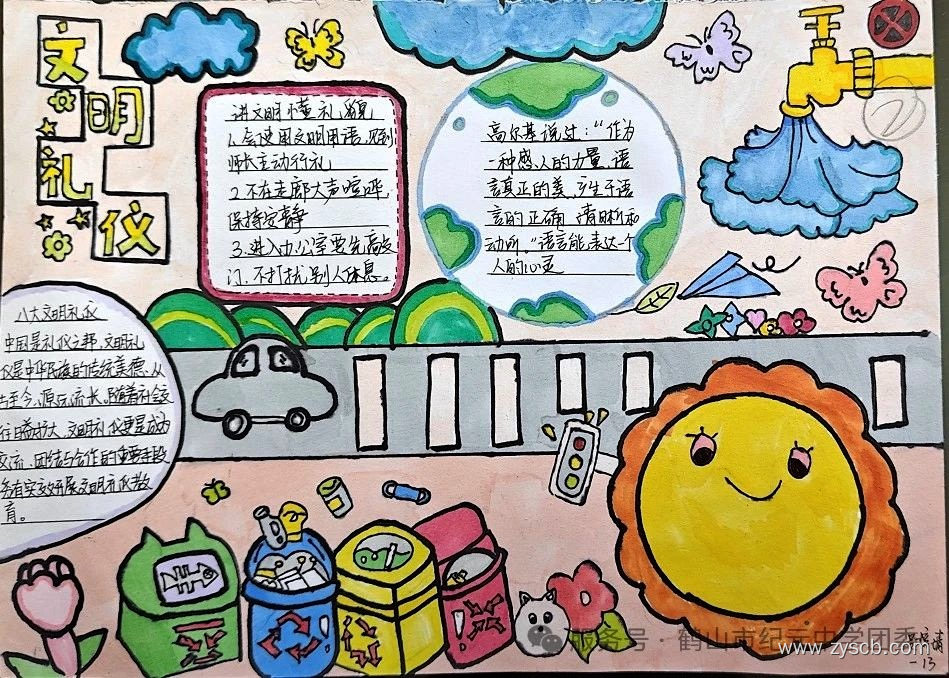 文明
礼仪
讲文明懂礼貌
1.会使用文明用语,见到
师长主动行礼
2.不在走廊大声喧哗,
保持安静
3.进入办公室要先敲
门、不打扰别人休息。
高尔基说过:"作为
一种感人的力量,语
言真正的美,产生于语
言的正确、清晰和
动听"语言能表达一个
人的心灵
八大文明礼仪
中国是礼仪之邦,文明礼
仪是中华民族的传统美德,从
古至今,源远流长,随着社会交
往日益扩大,文明礼仪更是成为
交流、团结与合作的重要手段
务有实效开展文明礼仪教
育。
服务号·鹤山市纪元中学团委
www.zyscb.com
-13